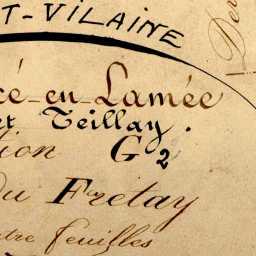 T-VILAINE
cé-en-Lamée
et Teillay.
tion G2
du Fretay
tre feuilles